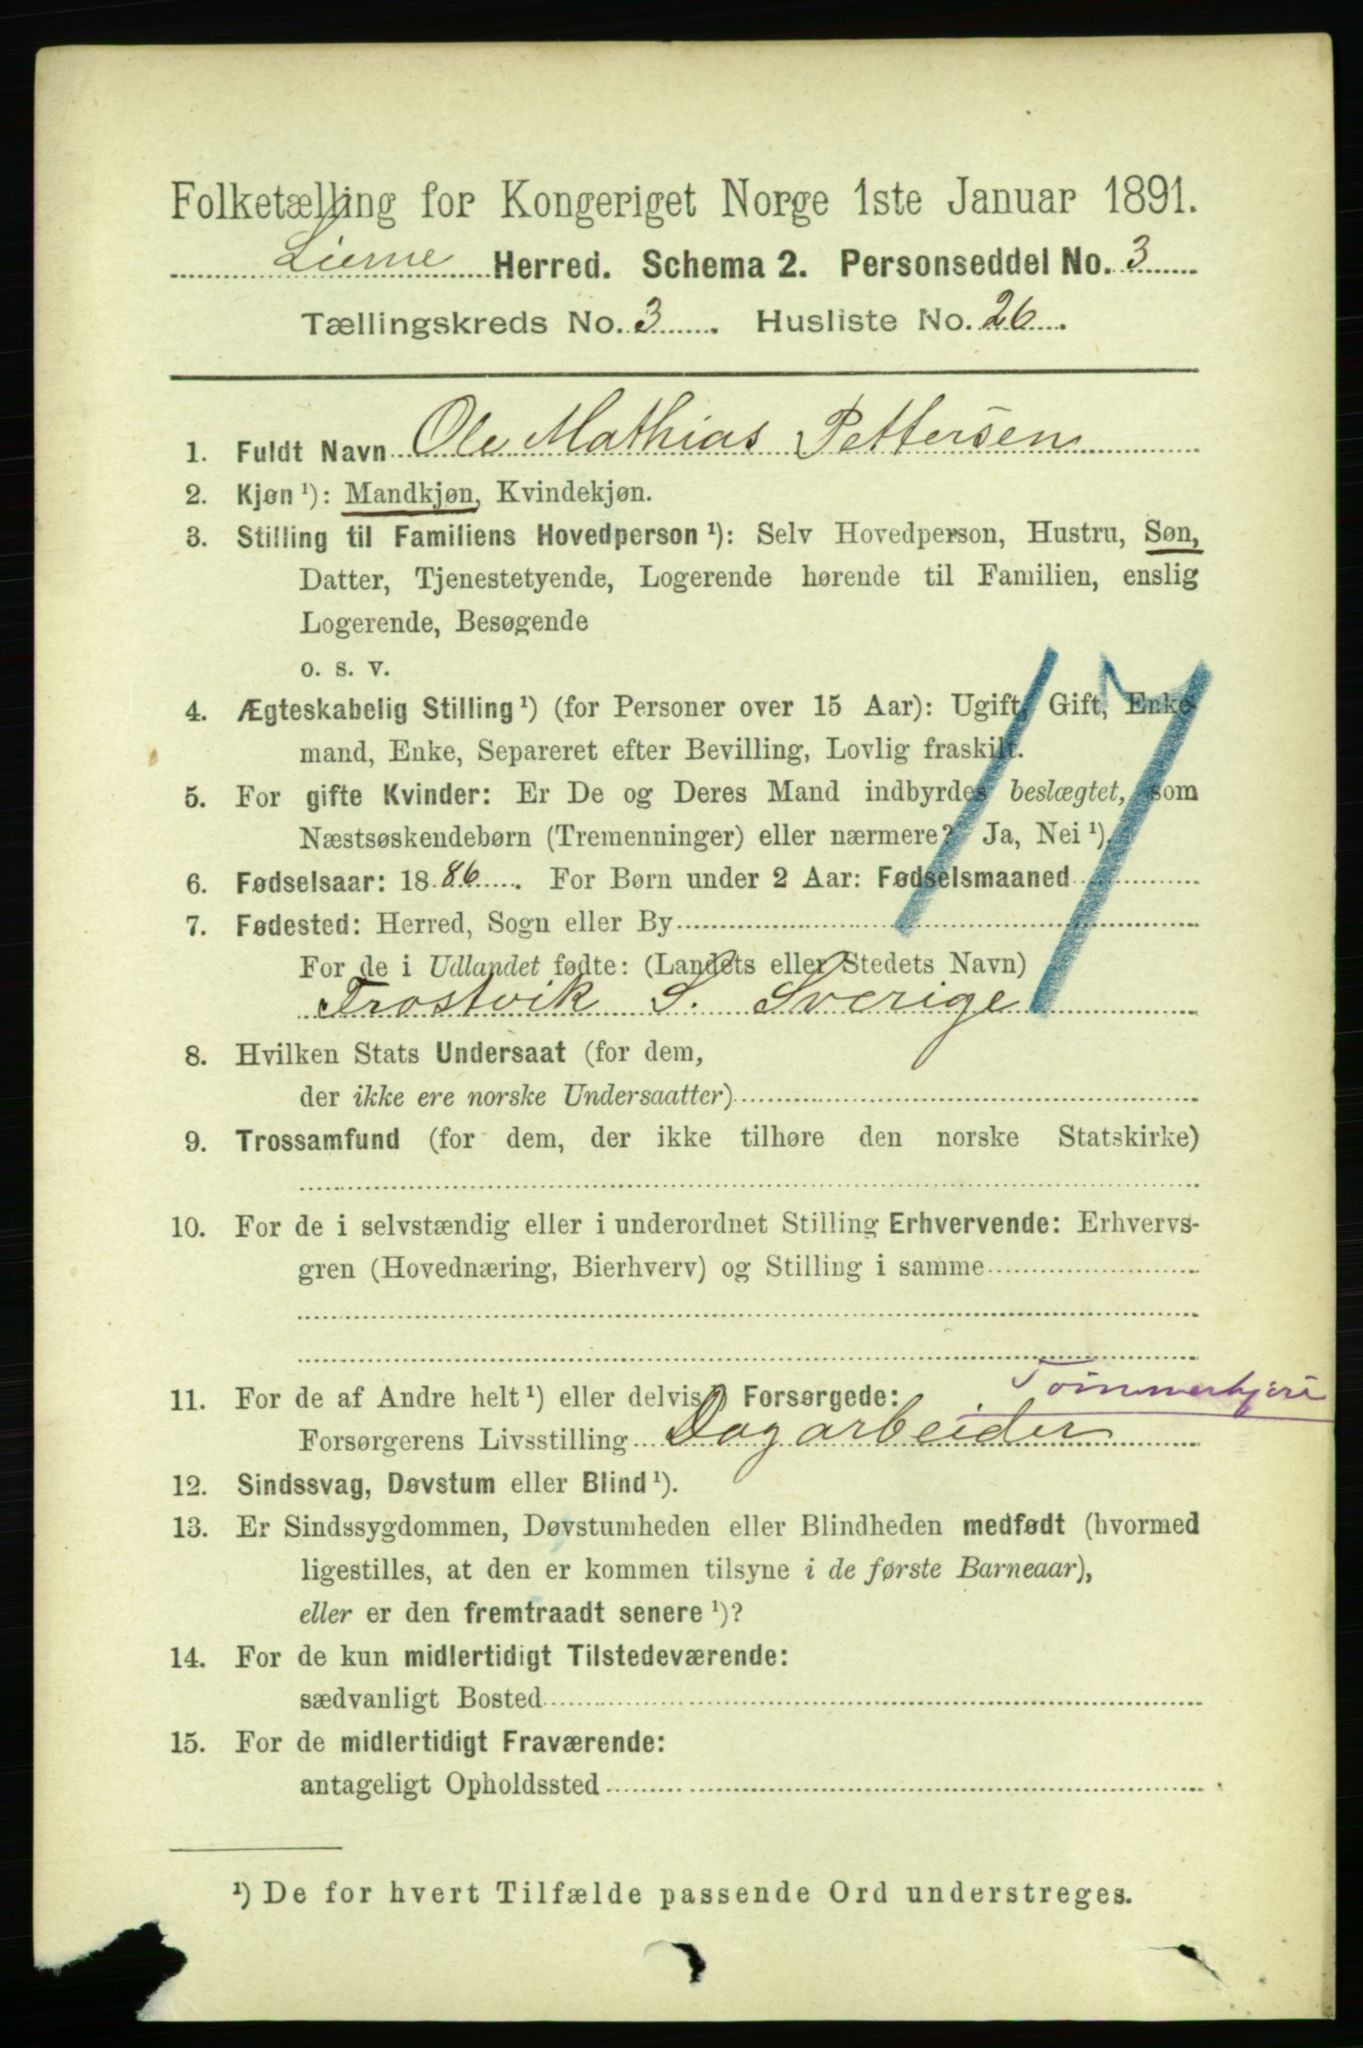 Folketælling for Kongeriget Norge 1ste Januar 1891.
Lierne Herred. Schema 2. Personseddel No. 3
Tællingskreds No. 3. Husliste No. 26.
1. Fuldt Navn Ole Mathias Pettersen
2. Kjøn ¹): Mandkjøn, Kvindekjøn.
3. Stilling til Familiens Hovedperson ¹): Selv Hovedperson, Hustru, Søn,
Datter, Tjenestetyende, Logerende hørende til Familien, enslig
Logerende, Besøgende
o. s. v.
4. Ægteskabelig Stilling ¹) (for Personer over 15 Aar): Ugift, Gift, Enke-
mand, Enke, Separeret efter Bevilling, Lovlig fraskilt.
5. For gifte Kvinder: Er De og Deres Mand indbyrdes beslægtet, som
Næstsøskendebørn (Tremenninger) eller nærmere? Ja, Nei ¹).
6. Fødselsaar: 1886. For Børn under 2 Aar: Fødselsmaaned
7. Fødested: Herred, Sogn eller By
For de i Udlandet fødte: (Landets eller Stedets Navn)
Frostvik S. Sverige
8. Hvilken Stats Undersaat (for dem,
der ikke ere norske Undersaatter)
9. Trossamfund (for dem, der ikke tilhøre den norske Statskirke)
10. For de i selvstændig eller i underordnet Stilling Erhvervende: Erhvervs-
gren (Hovednæring, Bierhverv) og Stilling i samme
Tømmerkjøre
11. For de af Andre helt ¹) eller delvis ¹) Forsørgede:
Forsørgerens Livsstilling Dagarbeider
12. Sindssvag, Døvstum eller Blind ¹).
13. Er Sindssygdommen, Døvstumheden eller Blindheden medfødt (hvormed
ligestilles, at den er kommen tilsyne i de første Barneaar),
eller er den fremtraadt senere ¹)?
14. For de kun midlertidigt Tilstedeværende:
sædvanligt Bosted
15. For de midlertidigt Fraværende:
antageligt Opholdssted
¹) De for hvert Tilfælde passende Ord understreges.